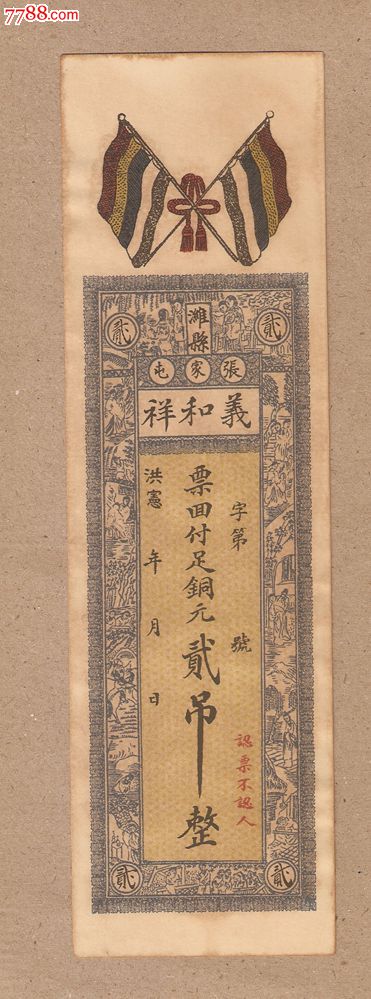 7788.com
貳 貳
濰縣
張家屯
義和祥
字第 號
票回付足銅元貳吊整
洪憲 年 月 日
認票不認人
貳 貳